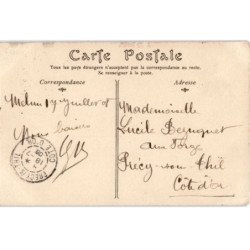 Carte Postale
Tous les pays étrangers n'acceptent pas la correspondance au verso.
Se renseigner à la poste.
Correspondance
Adresse
Melun 17 juillet 08
Bons baisers
Mademoiselle
Lucile Bezuguet
aux Forge
Précy-sous-Thil
Côte d'or
PRECY-S-THIL
CÔTE D'OR